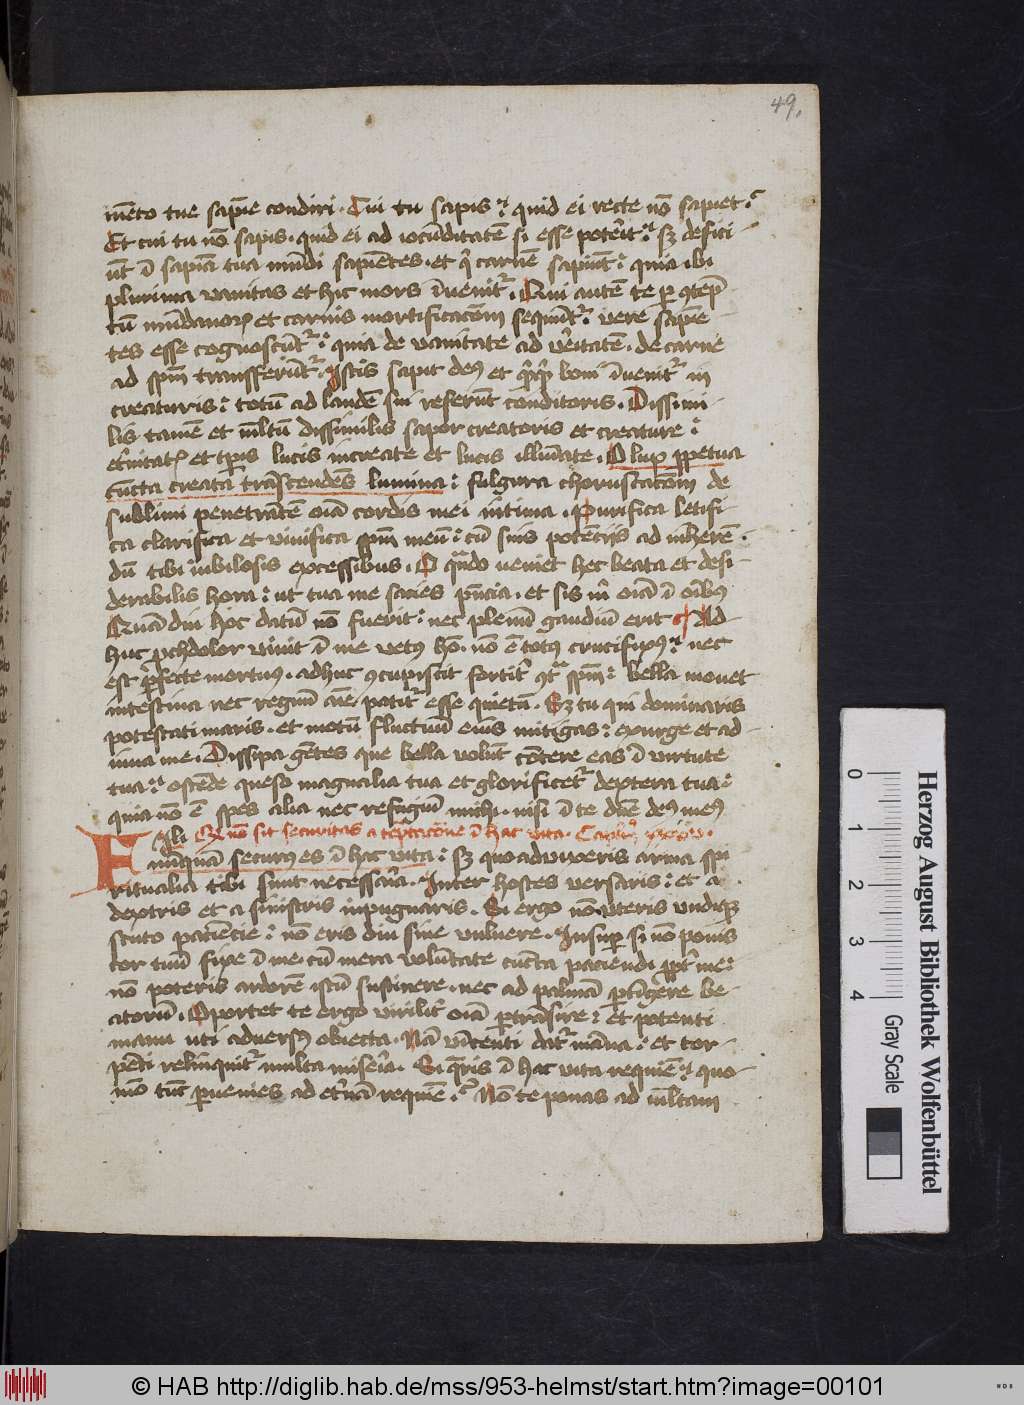 49.
mēto tue sapīe condiri. Cui tu sapis? quid ei recte nō sapiet?
Et cui tu nō sapis. quid ei ad iocūditatē si esse poterit? sz defici
ūt ī sapīa tua mūdi sapētes. et q̄ carnē sapiūt: quia ibi
plurima vanitas et hic mors īvenit᷑. Qui autē te per ꝯtēp
tū mūdanoꝝ et carnis mortificacōm sequūt᷑: vere sapiē
tes esse cognoscūt᷑: quia de vanitate ad v̓itatē. de carne
ad spm̄ transferūt᷑. Istis sapit deꝰ et qͥcqͥd boni īvenit᷑ in
creaturis: totū ad laudē sui referūt conditoris. Dissimi
lis tamē et ml̄tū dissimilis sapor creatoris et creature:
et̓nitatꝭ et tp̄is lucis increate et lucis illūiate. O lux ꝑpetua
cūcta creata trāscendēs lumina: fulgura choruscacōm de
sublimi penetrātē oīa cordis mei ītima. Purifica letifi
ca clarifica et vivifica spm̄ meū: cū suis potēcijs ad inherē
dū tibi iubilosis excessibus. O qn̄do veniet hec beata et desi
derabilis hora: ut tua me sacies pn̄cia. et sis m̄ oīa ī oībꝰ
Quādiu hoc datū nō fuerit: nec plenū gaudiū erit Ad
huc ꝓchdolor vivit ī me vetꝰ hō. nō ē totꝰ crucifixꝰ: nec
est ꝑfecte mortuꝰ. adhuc ꝯcupiscit fortit̓ ꝯͭ spm̄: bella movet
intestina nec regnū aīe patit᷑ esse quietū. Sz tu qui dominaris
potestati maris. et motū fluctuū eius mitigas: exurge et ad
iuva me. Dissipa gētes que bella volūt cōtere eas ī virtute
tua: ostēde queso magnalia tua et glorificet᷑ dextera tua:
quia nō ē spes alia nec refugiū michi. nisi ī te dn̄e deꝰ meꝰ
Qz nō sit securitas a tēptacōne ī hac vita. Capitl̄m
Fili nūquā securꝰ es ī hac vita: sz quoadvixeris arma spi
ritualia tibi sunt necessaria. Inter hostes versaris: et a
dextris et a sinistris inpugnaris. Si ergo nō uteris undiqꝫ
scuto paciēcie: nō eris diu sine vulnere. Insuꝑ si nō ponis
cor tuū fixe ī me cū mera volūtate cūcta paciendi ꝓpt̓ me:
nō poteris ardorē istū sustinere. nec ad palmā ꝑtīgere be
atorū. Oportet te ergo virilit̓ oīa ꝑtrāsire: et potenti
manu uti adversꝰ obiecta. Nā vīcenti dat᷑ māna: et tor
pēti relinquit᷑ multa miseria. Si q̄ris ī hac vita requiē? quo
mō tūc ꝑvenies ad et̓nā requiē? Nō te ponas ad ml̄tam
0
1
2
3
4
Gray Scale
Herzog August Bibliothek Wolfenbüttel
© HAB http://diglib.hab.de/mss/953-helmst/start.htm?image=00101